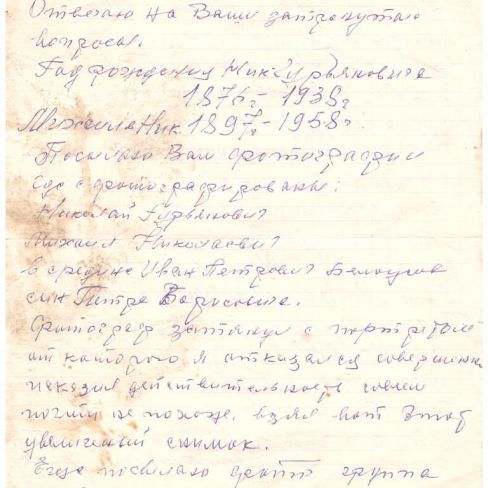 Отвечаю на Ваши затронутые
вопросы.
Год рождения Ник Гурьяновича
1876г - 1938г
Михаила Ник. 1897г - 1958г.
Посылаю Вам фотографии
где сфотографированы:
Николай Гурьянович
Михаил Николаевич
в средине Иван Петрович
сын Петра Борисовича.
Фотограф затянул с портретом
от которого я отказался совершенно
исказил действительность совсем
почти не похоже, взял вот этот
увеличеный снимок.
Еще посылаю фото группа